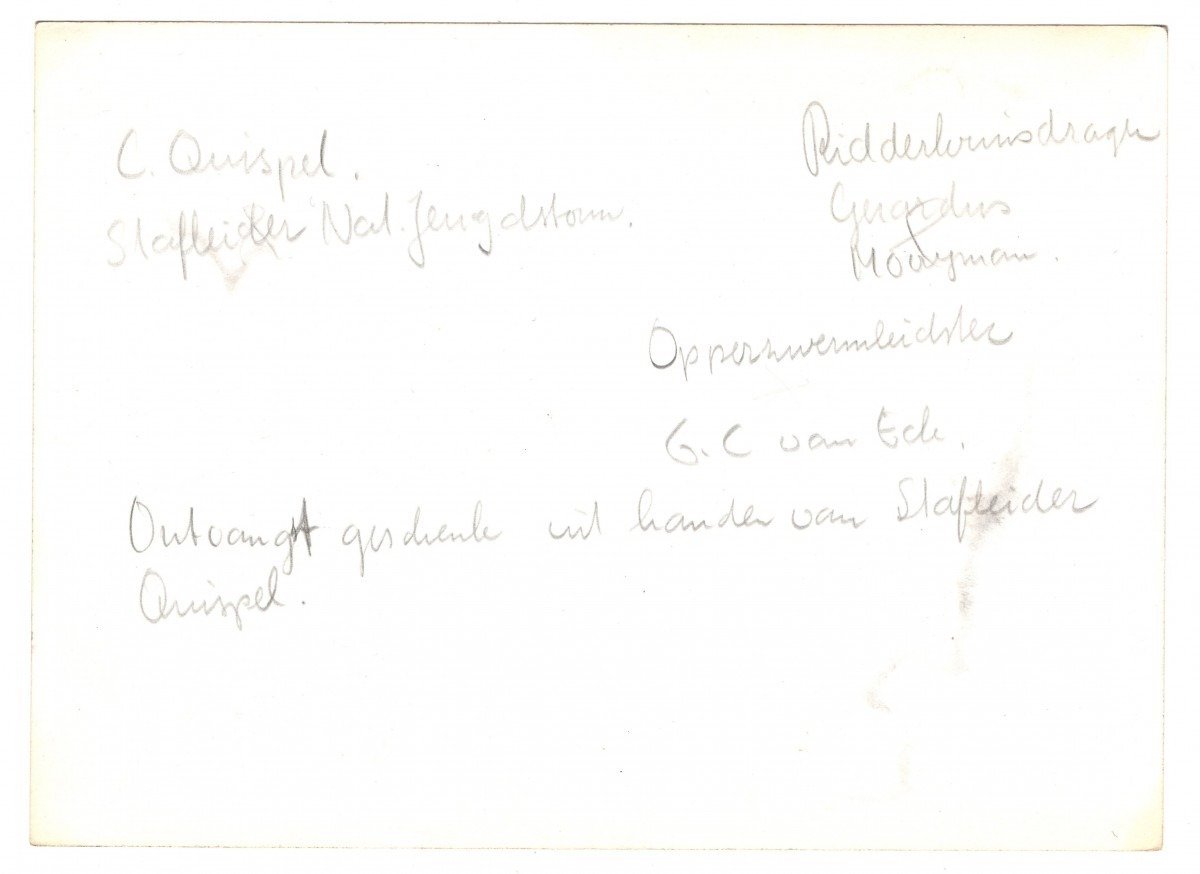 C. Quispel.
Stafleider Nat. Jeugdstorm.
Ridderkruisdrager
Gerardus
Mooyman.
Opperzwermleidster
G.C van Eck.
Ontvangt geschenk uit handen van Stafleider
Quispel.